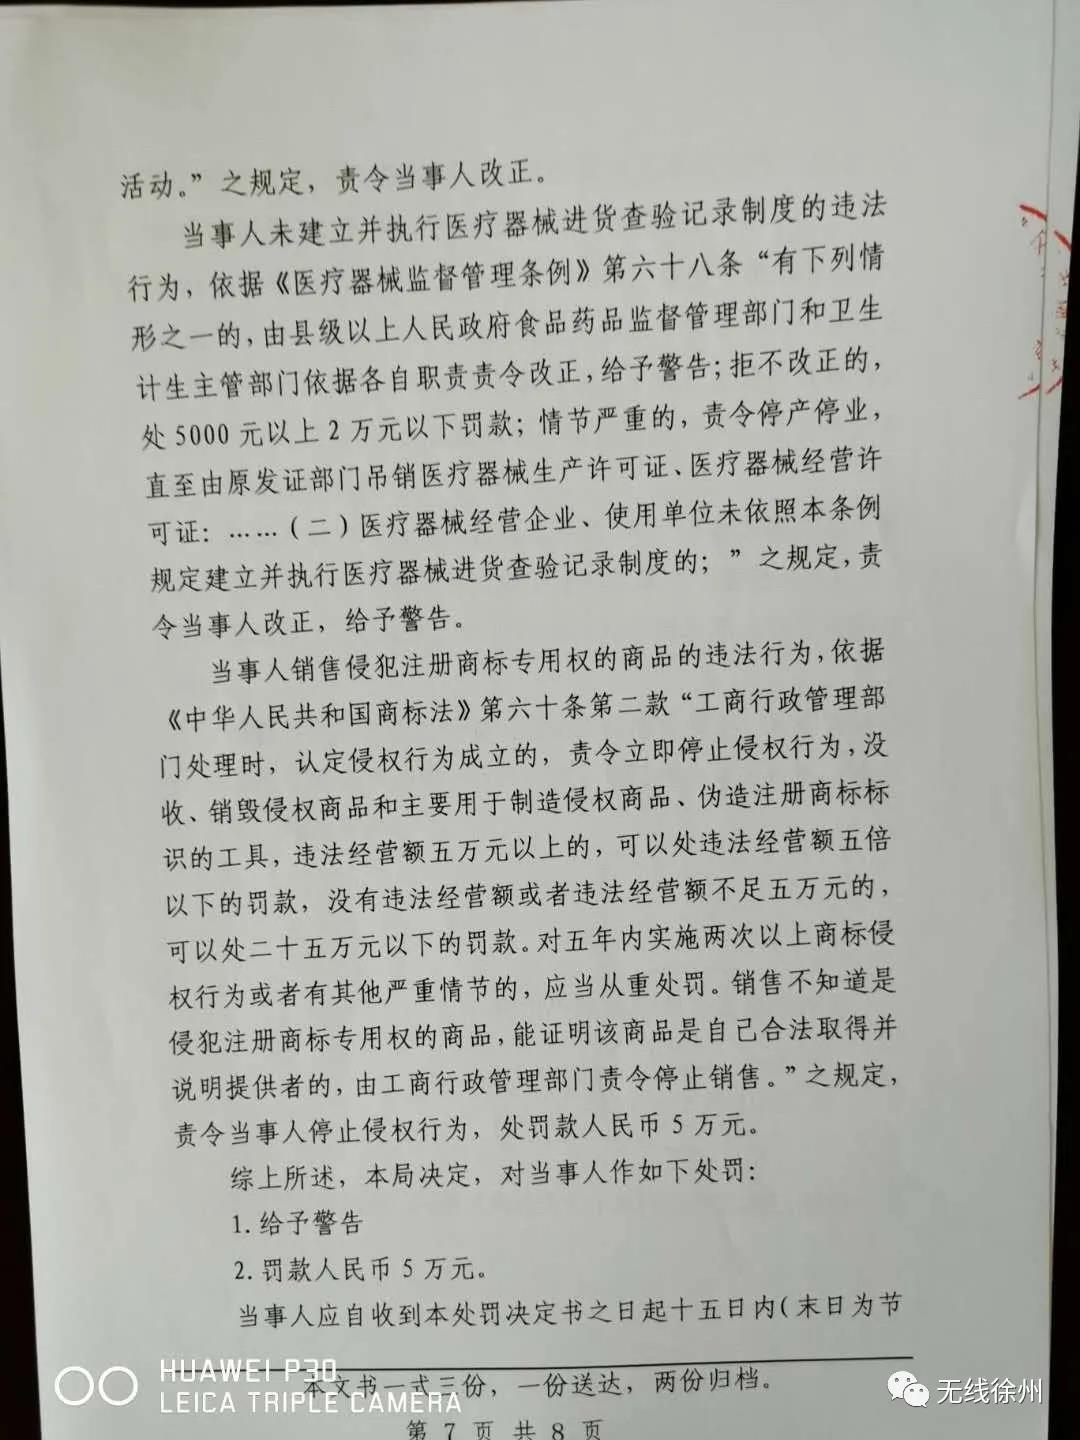 活动。”之规定，责令当事人改正。
当事人未建立并执行医疗器械进货查验记录制度的违法
行为，依据《医疗器械监督管理条例》第六十八条“有下列情
形之一的，由县级以上人民政府食品药品监督管理部门和卫生
计生主管部门依据各自职责责令改正，给予警告；拒不改正的，
处5000元以上2万元以下罚款；情节严重的，责令停产停业，
直至由原发证部门吊销医疗器械生产许可证、医疗器械经营许
可证：……（二）医疗器械经营企业、使用单位未依照本条例
规定建立并执行医疗器械进货查验记录制度的；”之规定，责
令当事人改正，给予警告。
当事人销售侵犯注册商标专用权的商品的违法行为，依据
《中华人民共和国商标法》第六十条第二款“工商行政管理部
门处理时，认定侵权行为成立的，责令立即停止侵权行为，没
收、销毁侵权商品和主要用于制造侵权商品、伪造注册商标标
识的工具，违法经营额五万元以上的，可以处违法经营额五倍
以下的罚款，没有违法经营额或者违法经营额不足五万元的，
可以处二十五万元以下的罚款。对五年内实施两次以上商标侵
权行为或者有其他严重情节的，应当从重处罚。销售不知道是
侵犯注册商标专用权的商品，能证明该商品是自己合法取得并
说明提供者的，由工商行政管理部门责令停止销售。”之规定，
责令当事人停止侵权行为，处罚款人民币5万元。
综上所述，本局决定，对当事人作如下处罚：
1.给予警告
2.罚款人民币5万元。
当事人应自收到本处罚决定书之日起十五日内（末日为节
本文书一式三份，一份送达，两份归档。
第 7 页 共 8 页
HUAWEI P30
LEICA TRIPLE CAMERA
无线徐州